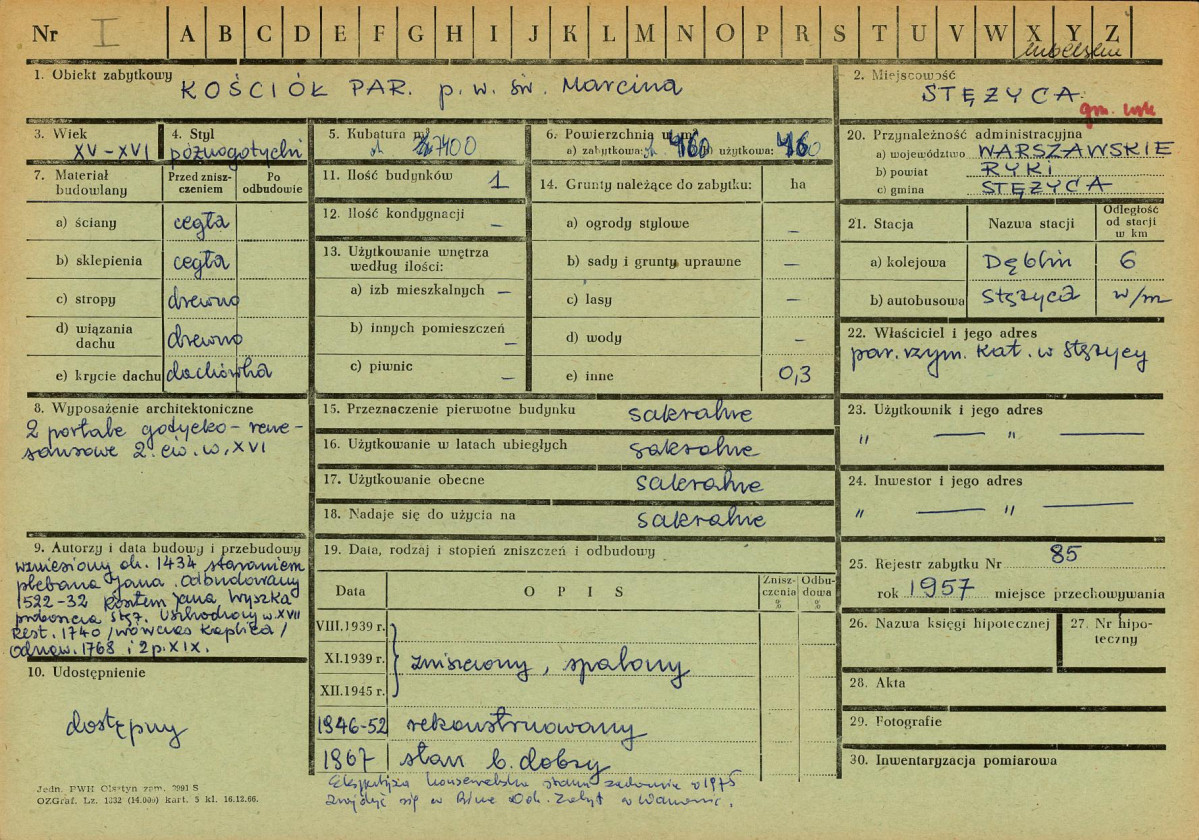 Nr I A B C D E F G H I J K L M N O P R S T U V W X Y Z
lubelskie
1. Obiekt zabytkowy
KOŚCIÓŁ PAR. p.w. św. Marcina
2. Miejscowość
STĘŻYCA
gm.
3. Wiek
XV-XVI
4. Styl
późnogotycki
5. Kubatura m³
7400
6. Powierzchnia w m²
a) zabytkowa: 460 b) użytkowa: 460
7. Materiał budowlany
Przed zniszczeniem
Po odbudowie
a) ściany cegła
b) sklepienia cegła
c) stropy drewno
d) wiązania dachu drewno
e) krycie dachu dachówka
8. Wyposażenie architektoniczne
2 portale gotycko-rene-
sansowe 2. ćw. w. XVI
9. Autorzy i data budowy i przebudowy
wzniesiony ok. 1434 staraniem
plebana Jana. Odbudowany
1522-32 kosztem Jana Wyszka
proboszcza Stęż. Uschodzony w. XVII
Rest. 1740 /wówczas kaplica/
odnow. 1768 i 2 p. XIX.
10. Udostępnienie
dostępny
Jedn. PWH Olsztyn zam. 3991 S
OZGraf. Lz. 1332 (14.000) kart. 5 kl. 16.12.66.
11. Ilość budynków 1
12. Ilość kondygnacji –
13. Użytkowanie wnętrza według ilości:
a) izb mieszkalnych –
b) innych pomieszczeń –
c) piwnic –
14. Grunty należące do zabytku: ha
a) ogrody stylowe –
b) sady i grunty uprawne –
c) lasy –
d) wody –
e) inne 0,3
15. Przeznaczenie pierwotne budynku sakralne
16. Użytkowanie w latach ubiegłych sakralne
17. Użytkowanie obecne sakralne
18. Nadaje się do użycia na sakralne
19. Data, rodzaj i stopień zniszczeń i odbudowy
Data
OPIS
Zniszczenia %
Odbudowa %
VIII.1939 r.
XI.1939 r. zniszczony, spalony
XII.1945 r.
1946-52 rekonstruowany
1967 stan b. dobry
Ekspertyza konserwatorska stanu zachowania z 1975
znajduje się w Biurze Dok. Zabyt. w Warszawie.
20. Przynależność administracyjna
a) województwo WARSZAWSKIE
b) powiat RYKI
c) gmina STĘŻYCA
21. Stacja
Nazwa stacji
Odległość od stacji w km
a) kolejowa Dęblin 6
b) autobusowa Stężyca w/m
22. Właściciel i jego adres
par. rzym. kat. w Stężycy
23. Użytkownik i jego adres
„ — „ —
24. Inwestor i jego adres
„ — „ —
25. Rejestr zabytku Nr 85
rok 1957 miejsce przechowywania
26. Nazwa księgi hipotecznej
27. Nr hipoteczny
28. Akta
29. Fotografie
30. Inwentaryzacja pomiarowa